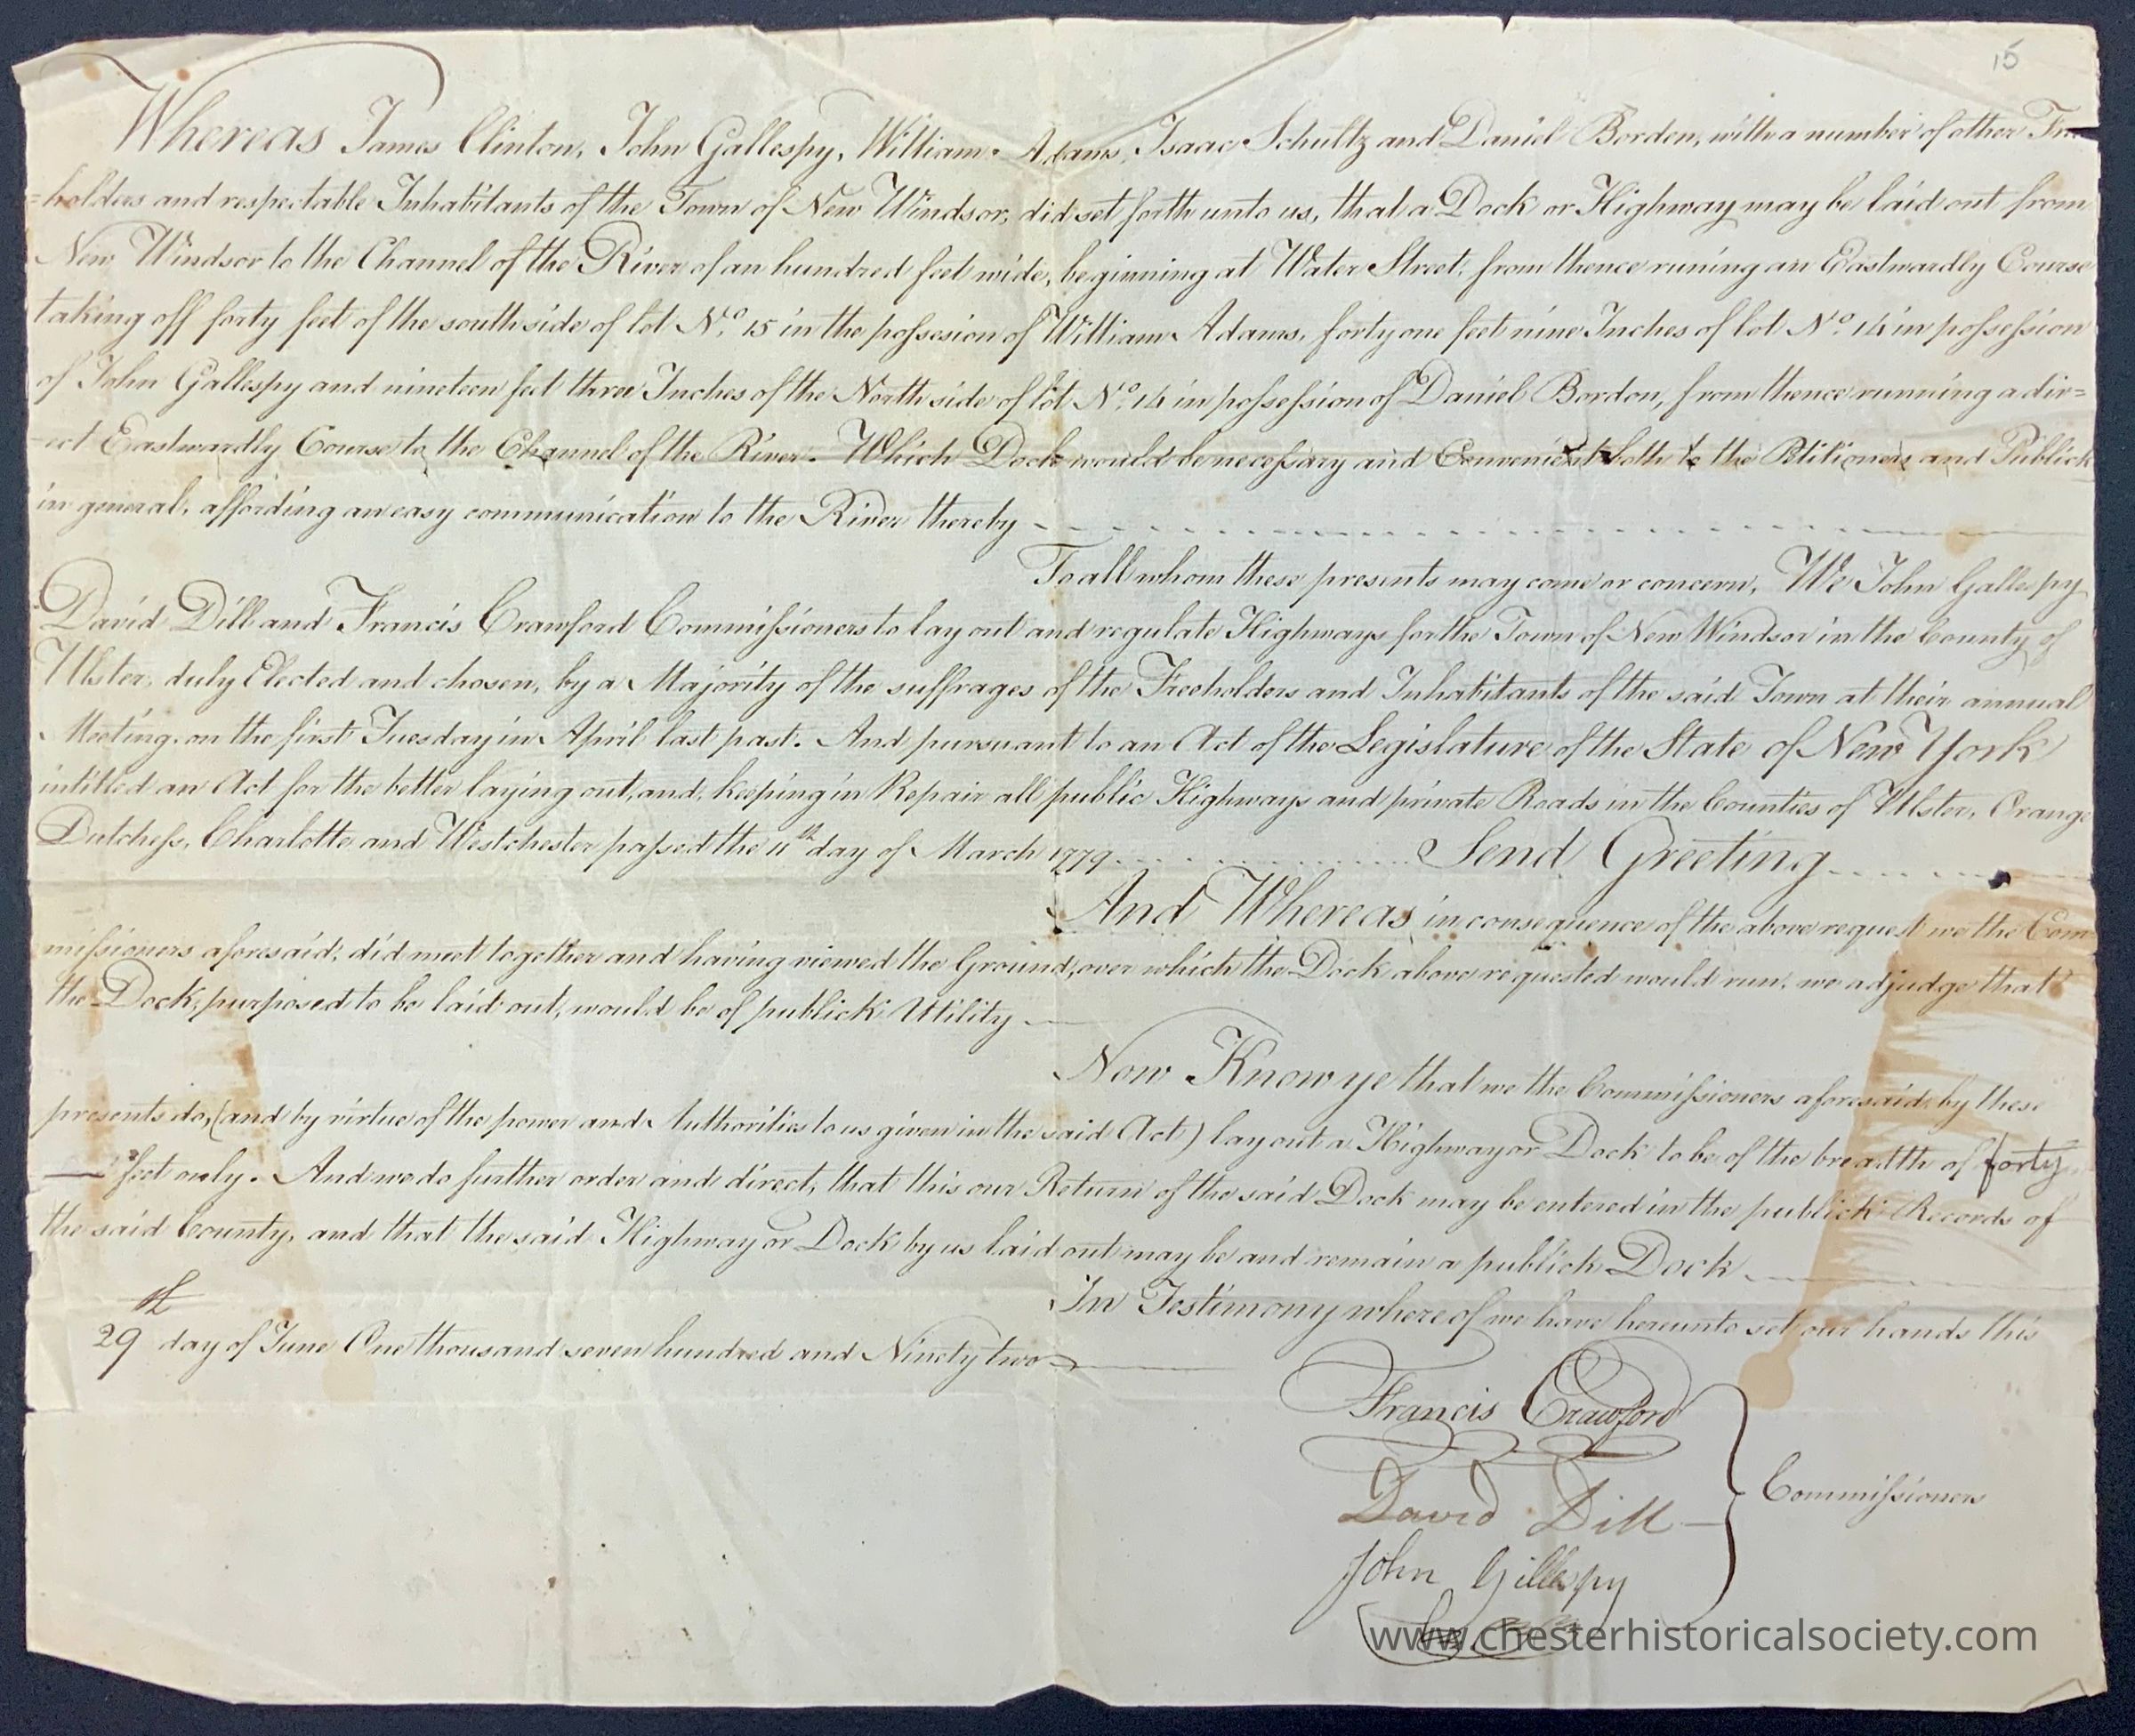 15
Whereas James Clinton, John Gallespy, William Adams, Isaac Schultz and Daniel Borden, with a number of other Free
=holders and respectable Inhabitants of the Town of New Windsor, did set forth unto us, that a Dock or Highway may be laid out from
New Windsor to the Channel of the River of an hundred feet wide, beginning at Water Street, from thence runing an Eastwardly Course
taking off forty feet of the south side of lot No. 15 in the possesion of William Adams, forty one feet nine Inches of lot No. 14 in possession
of John Gallespy and nineteen feet three Inches of the North side of lot No. 14 in possession of Daniel Bordon, from thence running a dir=
-ect Eastwardly Course to the Channel of the River. Which Dock would be necessary and Convenient both to the Petitioners and Publick
in general, affording an easy communication to the River thereby
To all whom these presents may come or concern, We John Gallespy
David Dill and Francis Crawford Commissioners to lay out and regulate Highways for the Town of New Windsor in the County of
Ulster, duly Elected and chosen, by a Majority of the suffrages of the Freeholders and Inhabitants of the said Town at their annual
Meeting, on the first Tuesday in April last past. And pursuant to an Act of the Legislature of the State of New York
intitled an Act for the better laying out, and, keeping in Repair all public Highways and private Roads in the Counties of Ulster, Orange
Dutchess, Charlotte and Westchester passed the 11th day of March 1779 Send Greeting
And Whereas in consequence of the above request we the Com
missioners aforesaid, did meet together and having viewed the Ground, over which the Dock above requested would run, we adjudge that
the Dock, purposed to be laid out, would be of publick Utility
Now Know ye that we the Commissioners aforesaid by these
presents do, (and by virtue of the power and Authorities to us given in the said Act) lay out a Highway or Dock to be of the breadth of forty
feet only. And we do further order and direct, that this our Return of the said Dock may be entered in the publick Records of
the said County, and that the said Highway or Dock by us laid out may be and remain a publick Dock
In Testimony whereof we have hereunto set our hands this
29th day of June One thousand seven hundred and Ninety two
Francis Crawford
David Dill
Commissioners
John Gillespy
www.chesterhistoricalsociety.com